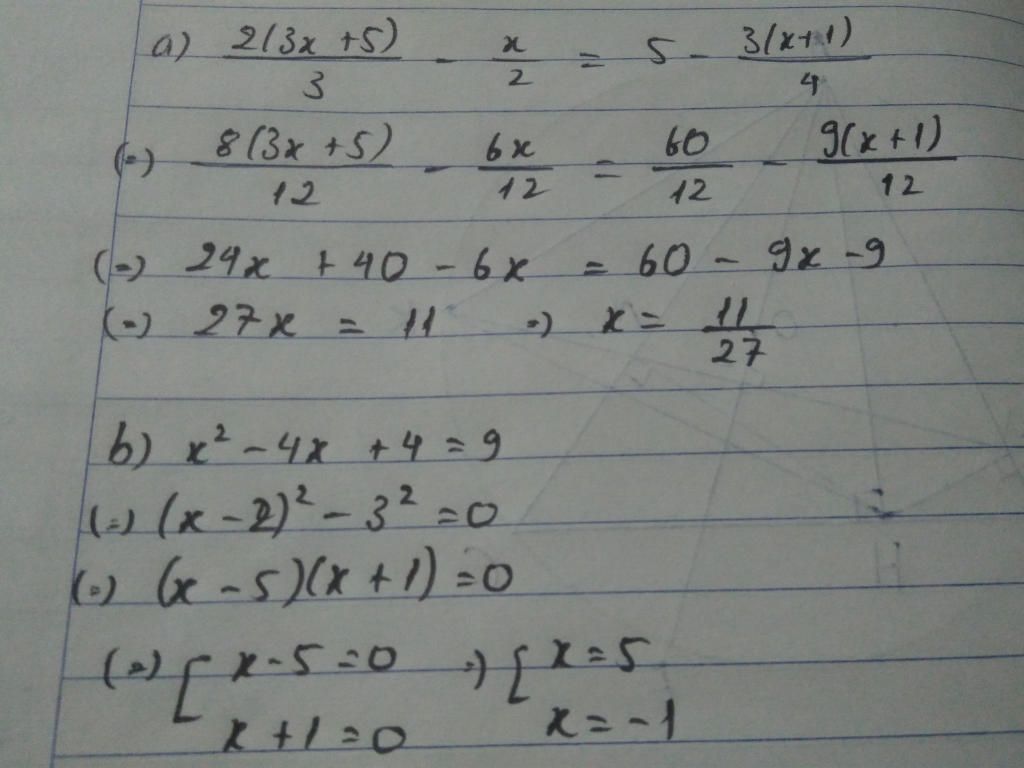 a) 2(3x+5)/3 - x/2 = 5 - 3(x+1)/4
(=) 8(3x+5)/12 - 6x/12 = 60/12 - 9(x+1)/12
(=) 24x + 40 - 6x = 60 - 9x - 9
(=) 27x = 11 => x = 11/27
b) x² - 4x + 4 = 9
(=) (x - 2)² - 3² = 0
(=) (x - 5)(x + 1) = 0
(=) [ x - 5 = 0 => [ x = 5
x + 1 = 0 x = -1